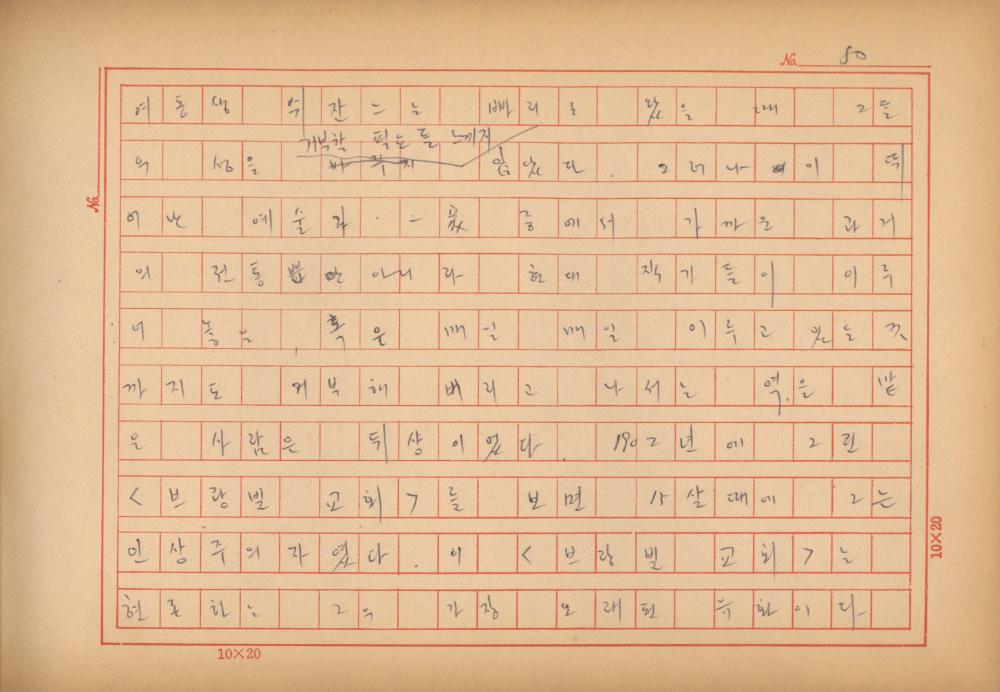 No. 80
여동생 쉬잔느는 빠리로 왔을 때 그들
거북할 필요를 느끼지
의 성을 바꾸지 않았다. 그러나 이 뛰
어난 예술가·그룹 중에서 가까운 과거
의 전통뿐만 아니라 현대 작가들이 이루
어 놓은, 혹은 매일 매일 이루고 있는 것
까지도 거부해 버리고 나서는 역을 맡
은 사람은 뒤샹이었다. 1902년에 그린
<브랑빌 교회>를 보면 15살때에 그는
인상주의자였다. 이 <브랑빌 교회>는
현존하는 그의 가장 오래된 유화이다.
No.
10×20
10×20